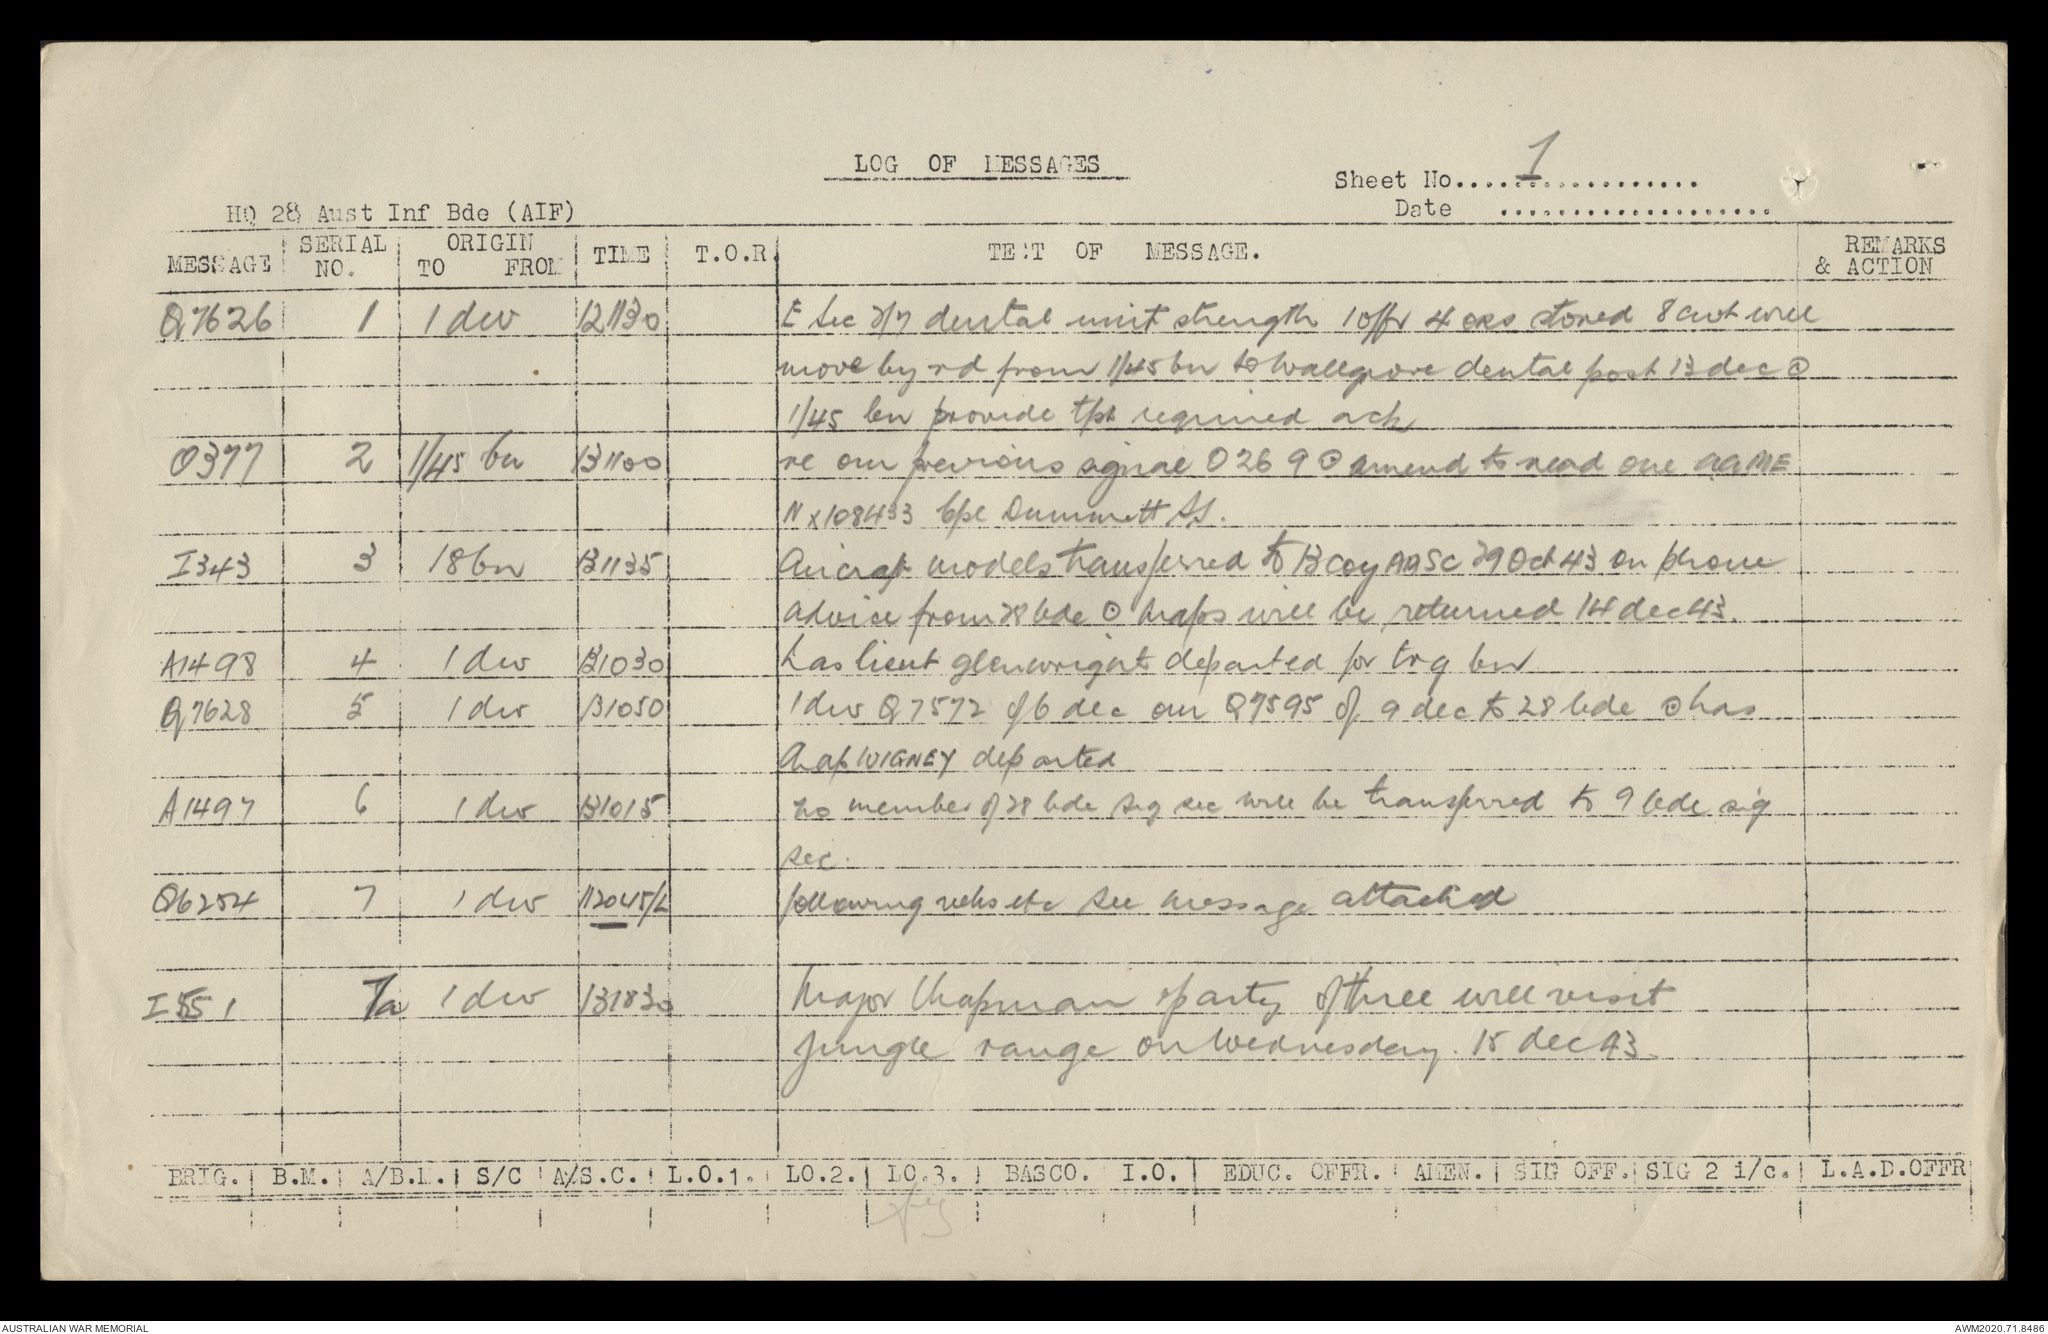 LOG OF MESSAGES
Sheet No.....1..................
HQ 28 Aust Inf Bde (AIF)
Date ....................
MESSAGE SERIAL NO. ORIGIN TO FROM TIME T.O.R. TEXT OF MESSAGE. REMARKS & ACTION
Q7626 1 1 div 121130 E Sec 2/7 dental unit strength 1 offr 4 ors stored 8 cwt will
move by rd from 1/45 bn to Wallgrove dental post 13 dec ⊙
1/45 bn provide tpt required ack
O377 2 1/45 bn 131100 re our previous signal O269 ⊙ amend to read one AAME
NX108433 Cpl Dummett
I343 3 18 bn 131135 Aircraft models transferred to 13 Coy AASC 29 Oct 43 on phone
advice from 28 bde ⊙ Maps will be returned 14 dec 43.
A1498 4 1 div 131030 has lieut glenwright departed for trg bn
Q7628 5 1 div 131050 1 div Q7572 of 6 dec our Q7595 of 9 dec to 28 bde ⊙ has
Chap WIGNEY departed
A1497 6 1 div 131015 no member of 28 bde sig sec will be transferred to 9 bde sig
sec.
Q6254 7 1 div 112045/L following vehs etc See message attached
I 551 7a 1 div 131830 Major Chapman & party of three will visit
jungle range on Wednesday. 15 dec 43.
BRIG. B.M. A/B.M. S/C A/S.C. L.O.1. LO.2. LO.3. BASCO. I.O. EDUC. OFFR. AMEN. SIG OFF. SIG 2 i/c. L.A.D.OFFR
AUSTRALIAN WAR MEMORIAL
AWM2020.71.8486